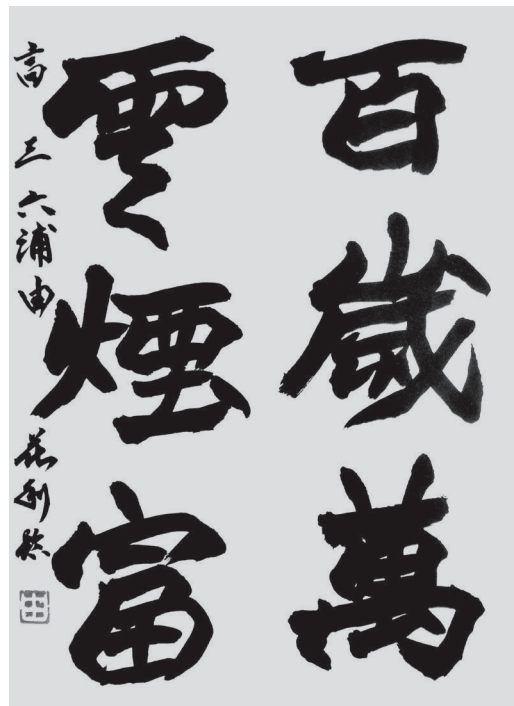 百歲萬
雲煙富
高三 六浦由花利